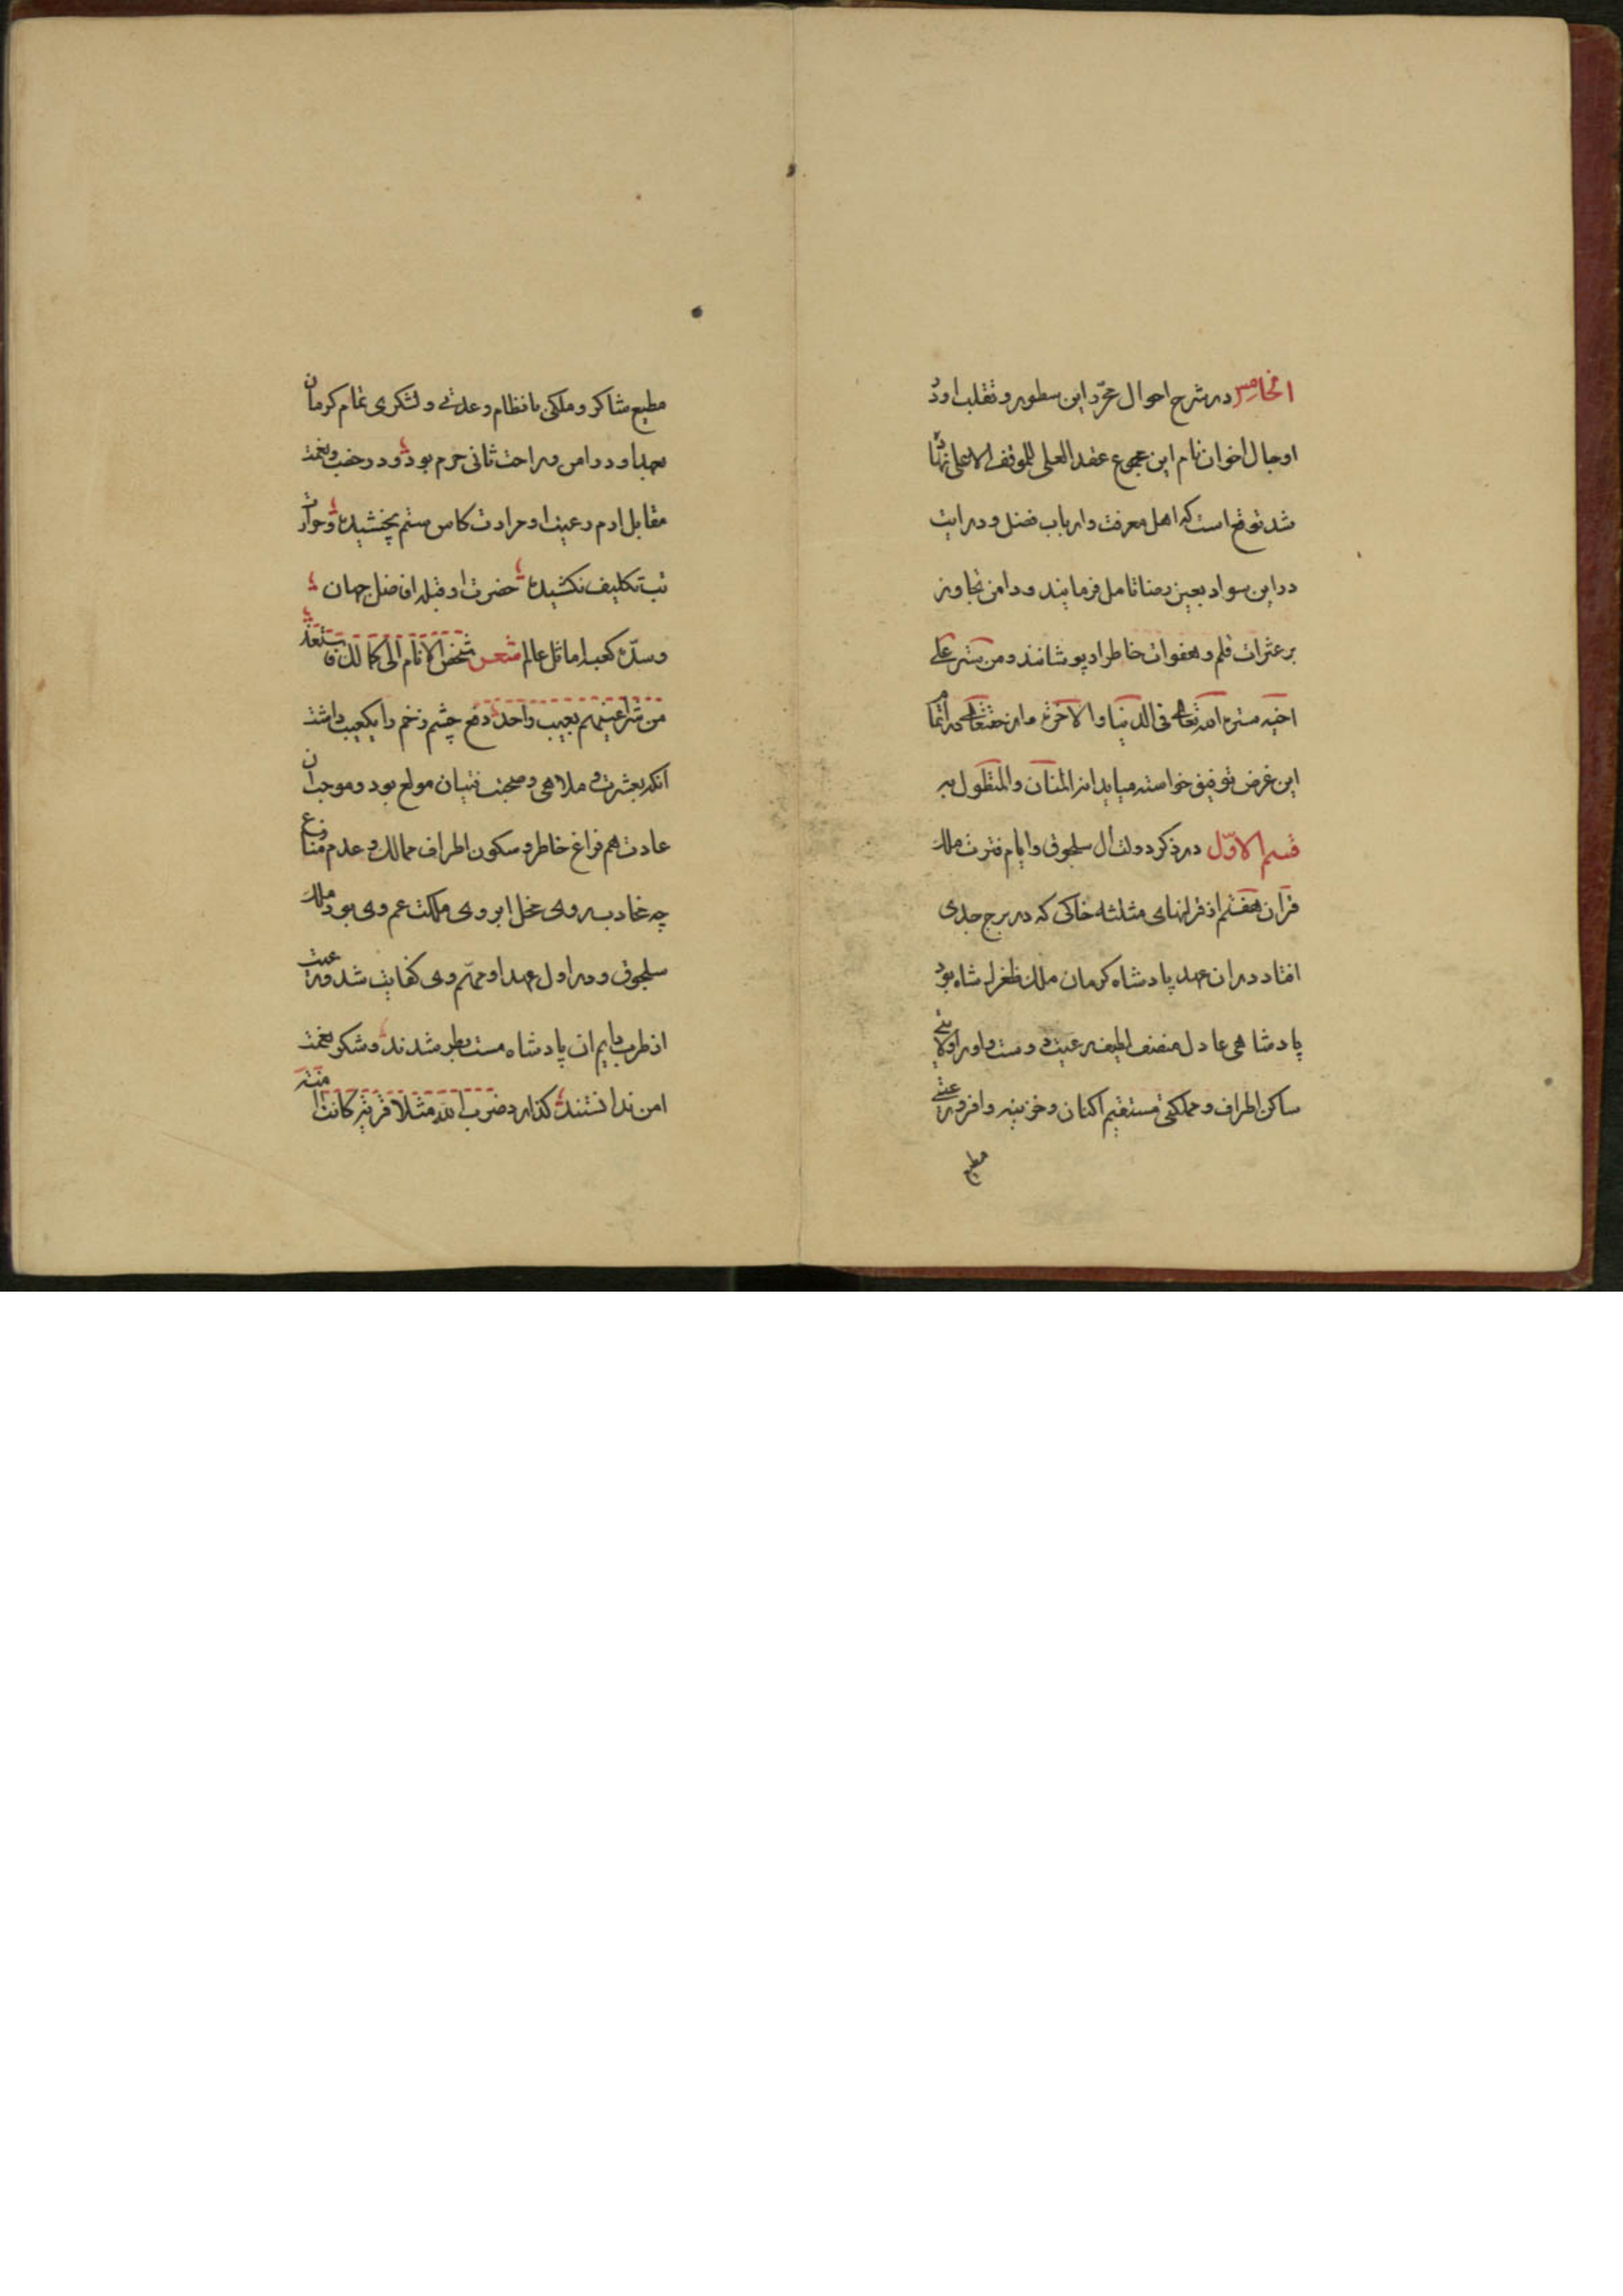 الخامس در شرح احوال محرّر این سطور و تقلب او در
اوحال اخوان نام این مجموع عقد العلی للموقف الاعلی نهاده
شد توقع است که اهل معرفت و ارباب فضل و درایت
در این سواد بعین رضا تامل فرمایند و دامن تجاوز
بر عثرات قلم و هفوات خاطر او پوشانند و من ستر علی
اخیه ستره الله تعالی فی الدنیا والاخرة و از حقتعالی در اتمام
این غرض توفیق خواسته میاید انه المنان والمتطول به
قسم الاوّل در ذکر دولت ال سلجوق و ایام فترت ملک
قران هفتم از قرانهای مثلثه خاکی که در برج جدی
افتاد در ان عهد پادشاه کرمان ملک طغرل شاه بود
پادشاهی عادل منصف لطیف رعیت دوست و او را ولایتی
ساکن اطراف و مملکتی مستقیم اکناف و خزینه وافر و رعیتی
مطیع
مطیع شاکر و ملکی با نظام و عدتی و لشکری تمام کرمان
بعهد او در امن و راحت ثانی حرم بود و در خصب و نعمت
مقابل ارم رعیت او حرارت کاس ستم نچشیده و حوار
تب تکلیف نکشیده حضرت او قبله افاضل جهان
و سدّه کعبه اماثل عالم شعر شخص الانام الی کمالک فاستعذ
من شر اعینهم بعیب واحد دفع چشم زخم را یکعیب داشت
آنکه بعشرت و ملاهی و صحبت قتیان مولع بود و موجب ان
عادت هم فراغ خاطر و سکون اطراف ممالک و عدم منازع
چه غادب روی محل ابروی مملکت عم وی بود ملک
سلجوق و در اول عهد او مهم وی کفایت شد و رعیت
از طرب دایم ان پادشاه مست بطر شدند و شکر نعمت
امن ندانستند گذارد و ضرب الله مثلا قریة کانت امنة